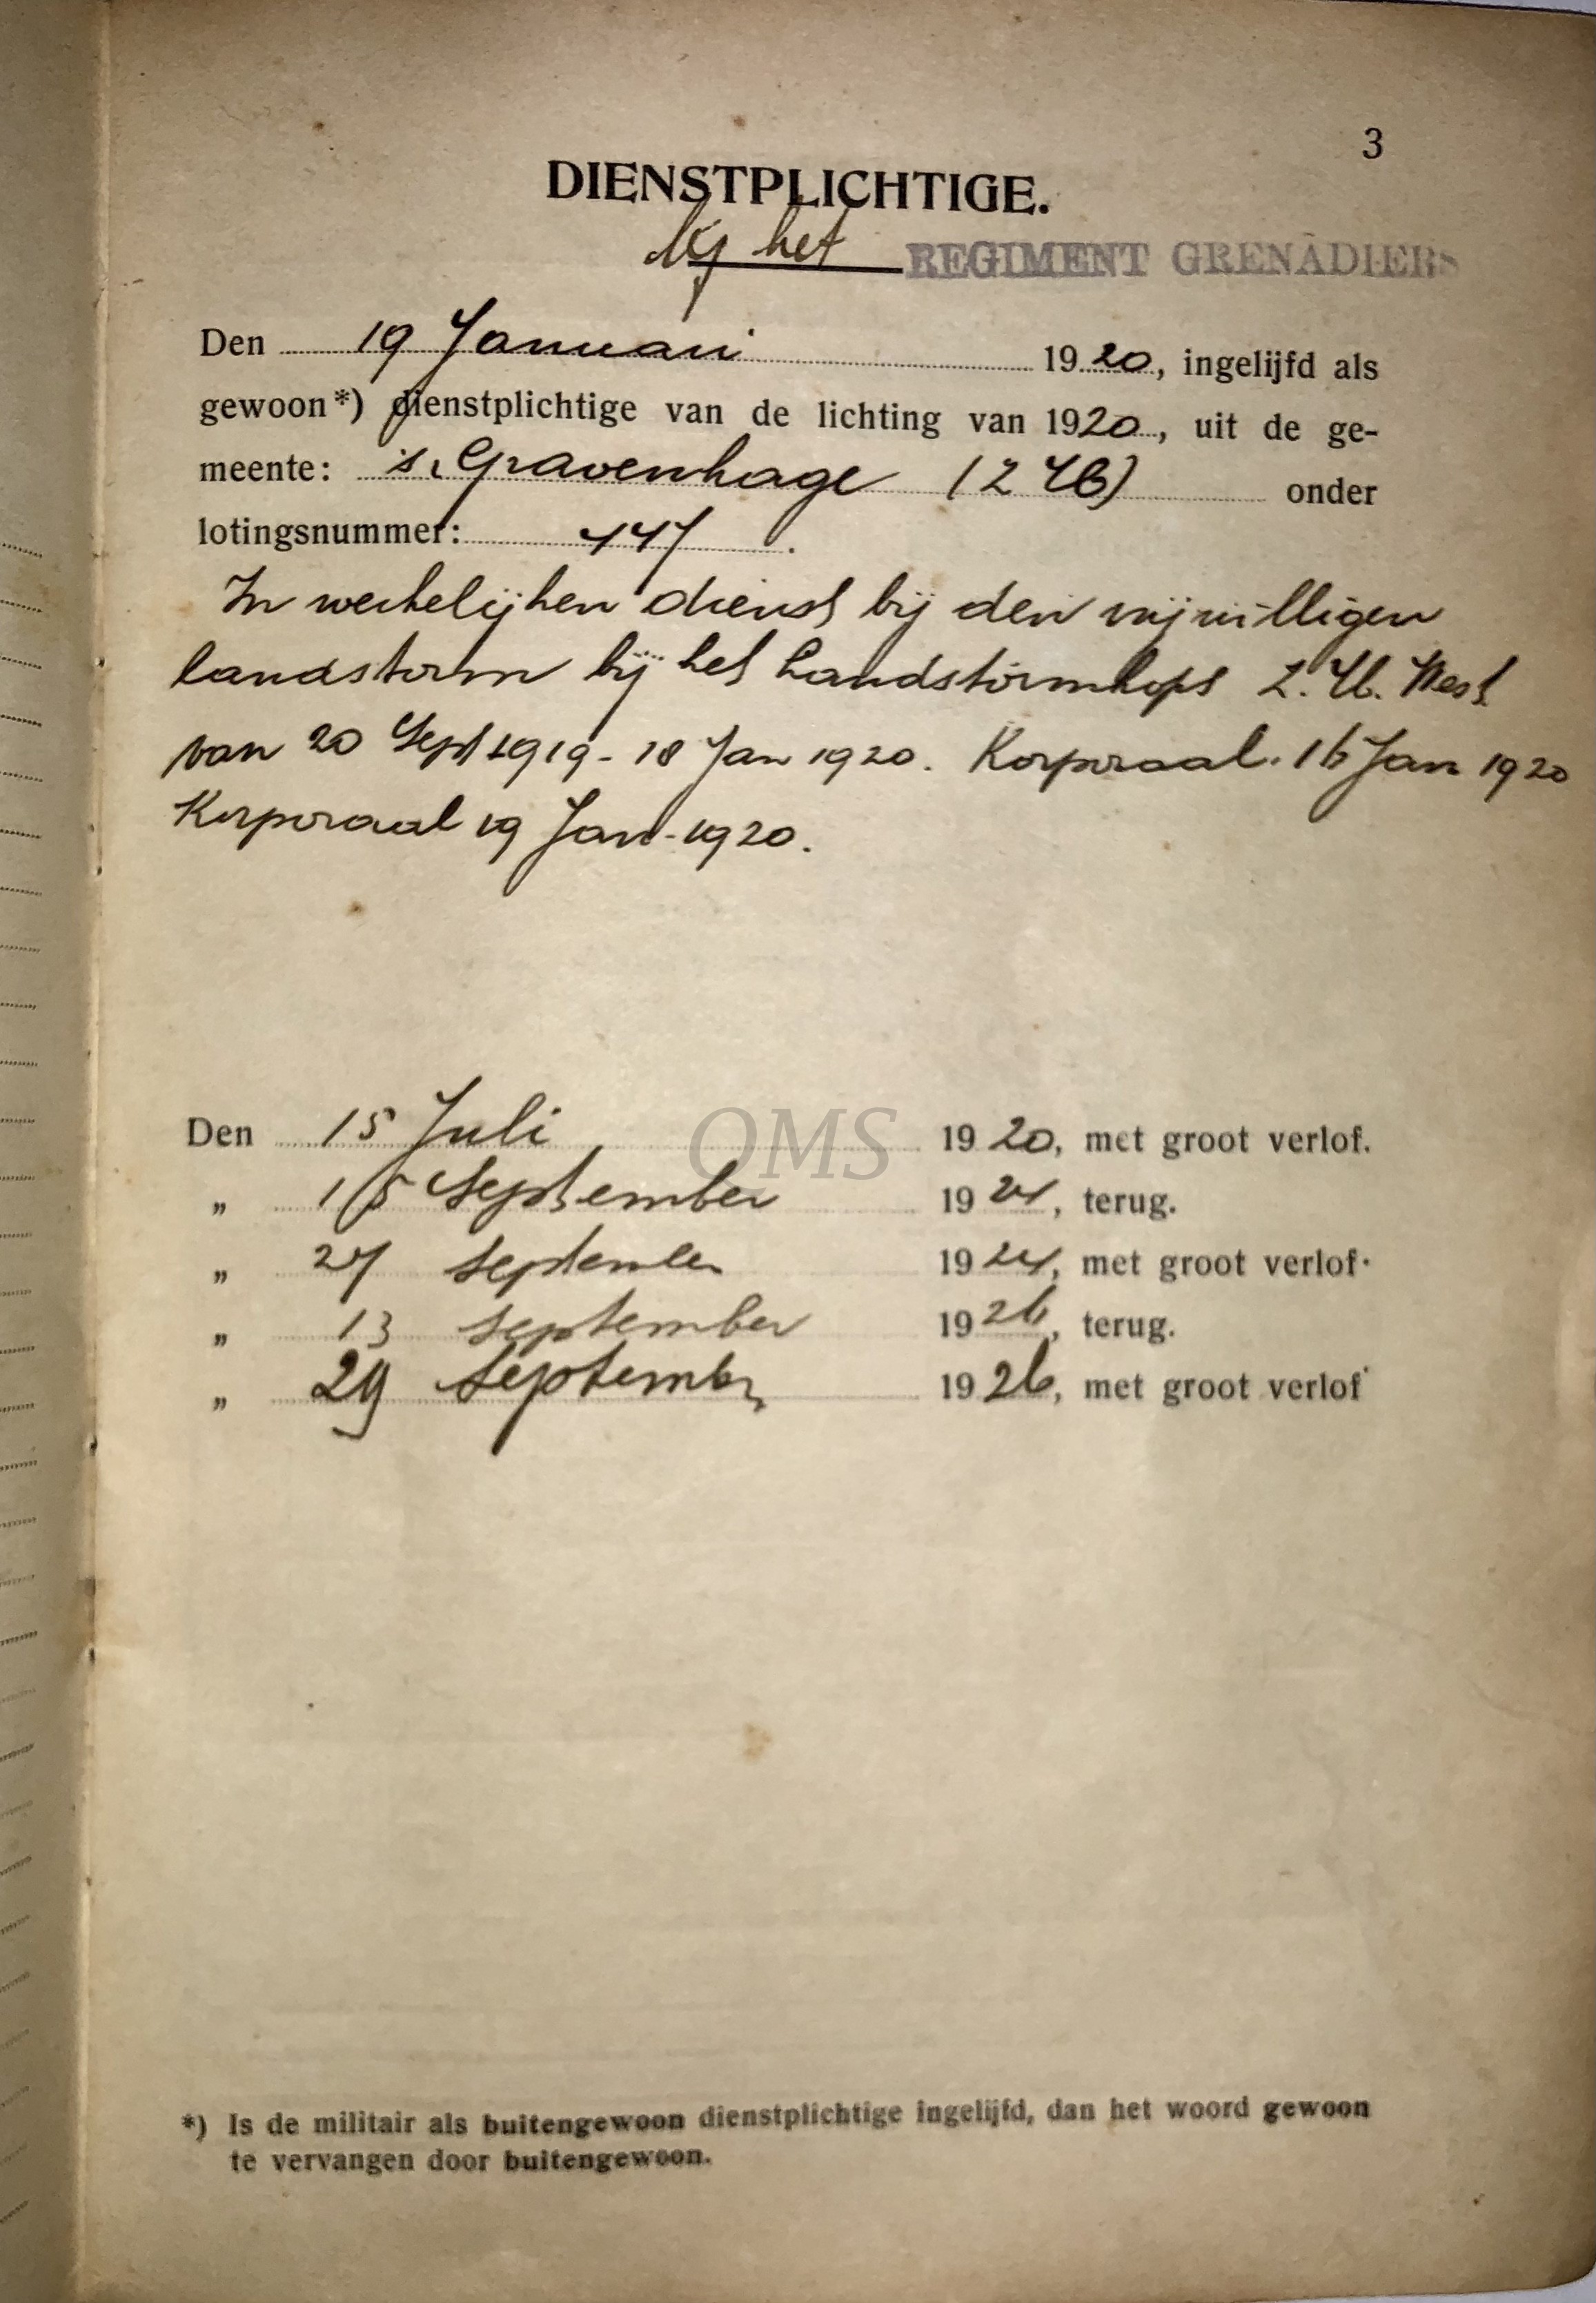 3
DIENSTPLICHTIGE.
bij het REGIMENT GRENADIERS
Den 19 Januari 1920, ingelijfd als
gewoon*) dienstplichtige van de lichting van 1920, uit de ge-
meente: 's Gravenhage (Z H) onder
lotingsnummer:
In werkelijken dienst bij den vrijwilligen
landstorm bij het Landstormkorps Z. H. West
van 20 Sept 1919 - 18 Jan 1920. Korporaal. 16 Jan 1920
Korporaal 19 Jan - 1920.
Den 15 Juli 1920, met groot verlof.
QMS
„ 15 September 1924, terug.
„ 27 September 1924, met groot verlof.
„ 13 September 1926, terug.
„ 29 September 1926, met groot verlof
*) Is de militair als buitengewoon dienstplichtige ingelijfd, dan het woord gewoon
te vervangen door buitengewoon.